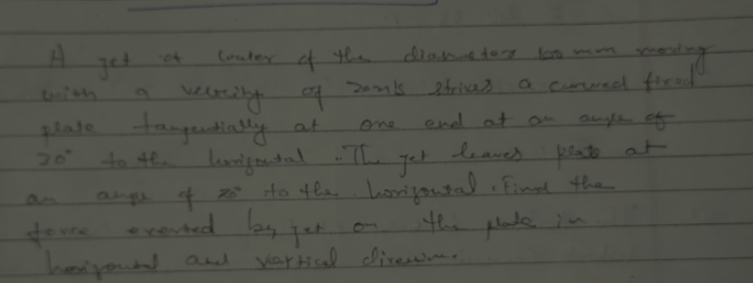 A jet of water of the diameter 100 mm moving
with a velocity of 20 m/s strikes a curved fixed
plate tangentially at one end at an angle of
30° to the horizontal. The jet leaves plate at
an angle of 20° to the horizontal. Find the
force exerted by jet on the plate in
horizontal and vertical direction.